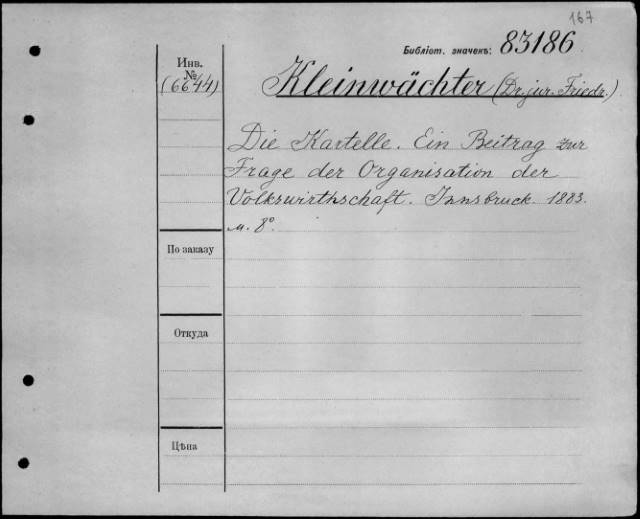 167
Библіот. значекъ: 83186
Инв.
№
(6644)
Kleinwächter (Dr. jur. Friedr.)
Die Kartelle. Ein Beitrag zur
Frage der Organisation der
Volkswirthschaft. Innsbruck. 1883.
м. 8º.
По заказу
Откуда
Цѣна